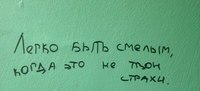 Легко быть смелым,
когда это не твои
страхи.